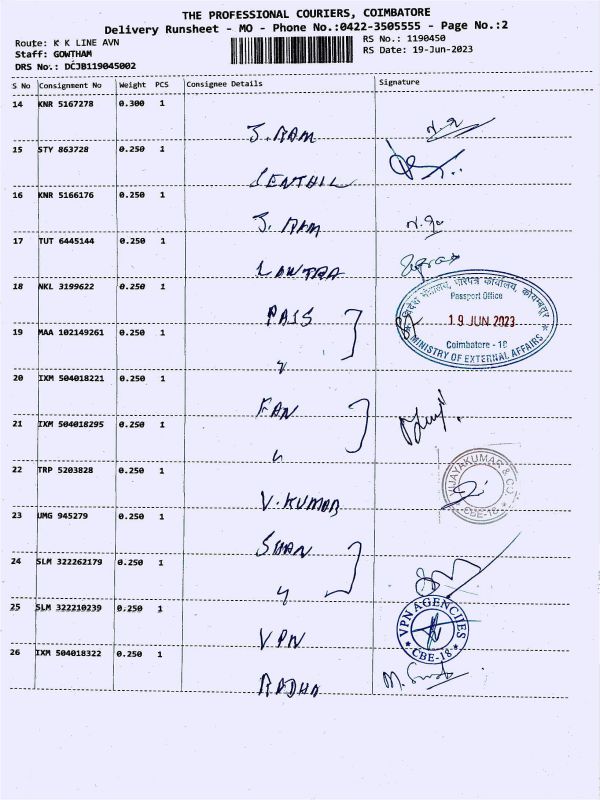 THE PROFESSIONAL COURIERS, COIMBATORE
Delivery Runsheet - MO - Phone No.:0422-3505555 - Page No.:2
Route: K K LINE AVN
RS No.: 1190450
Staff: GOWTHAM
RS Date: 19-Jun-2023
DRS No.: DCJB119045002
S No Consignment No Weight PCS Consignee Details Signature
14 KNR 5167278 0.300 1
J. RAM
15 STY 863728 0.250 1
SENTHIL
16 KNR 5166176 0.250 1
J. RAM
17 TUT 6445144 0.250 1
18 NKL 3199622 0.250 1
PASS
विदेश मंत्रालय, पारपत्र कार्यालय, कोयम्बत्तूर
Passport Office
19 JUN 2023
Coimbatore - 18
MINISTRY OF EXTERNAL AFFAIRS
19 MAA 102149261 0.250 1
20 IXM 504018221 0.250 1
FAN
21 IXM 504018295 0.250 1
22 TRP 5203828 0.250 1
V. KUMAR
VIJAYAKUMAR & CO.
CBE-18
23 UMG 945279 0.250 1
24 SLM 322262179 0.250 1
25 SLM 322210239 0.250 1
VPN
VPN AGENCIES
CBE-18
26 IXM 504018322 0.250 1
RADHA